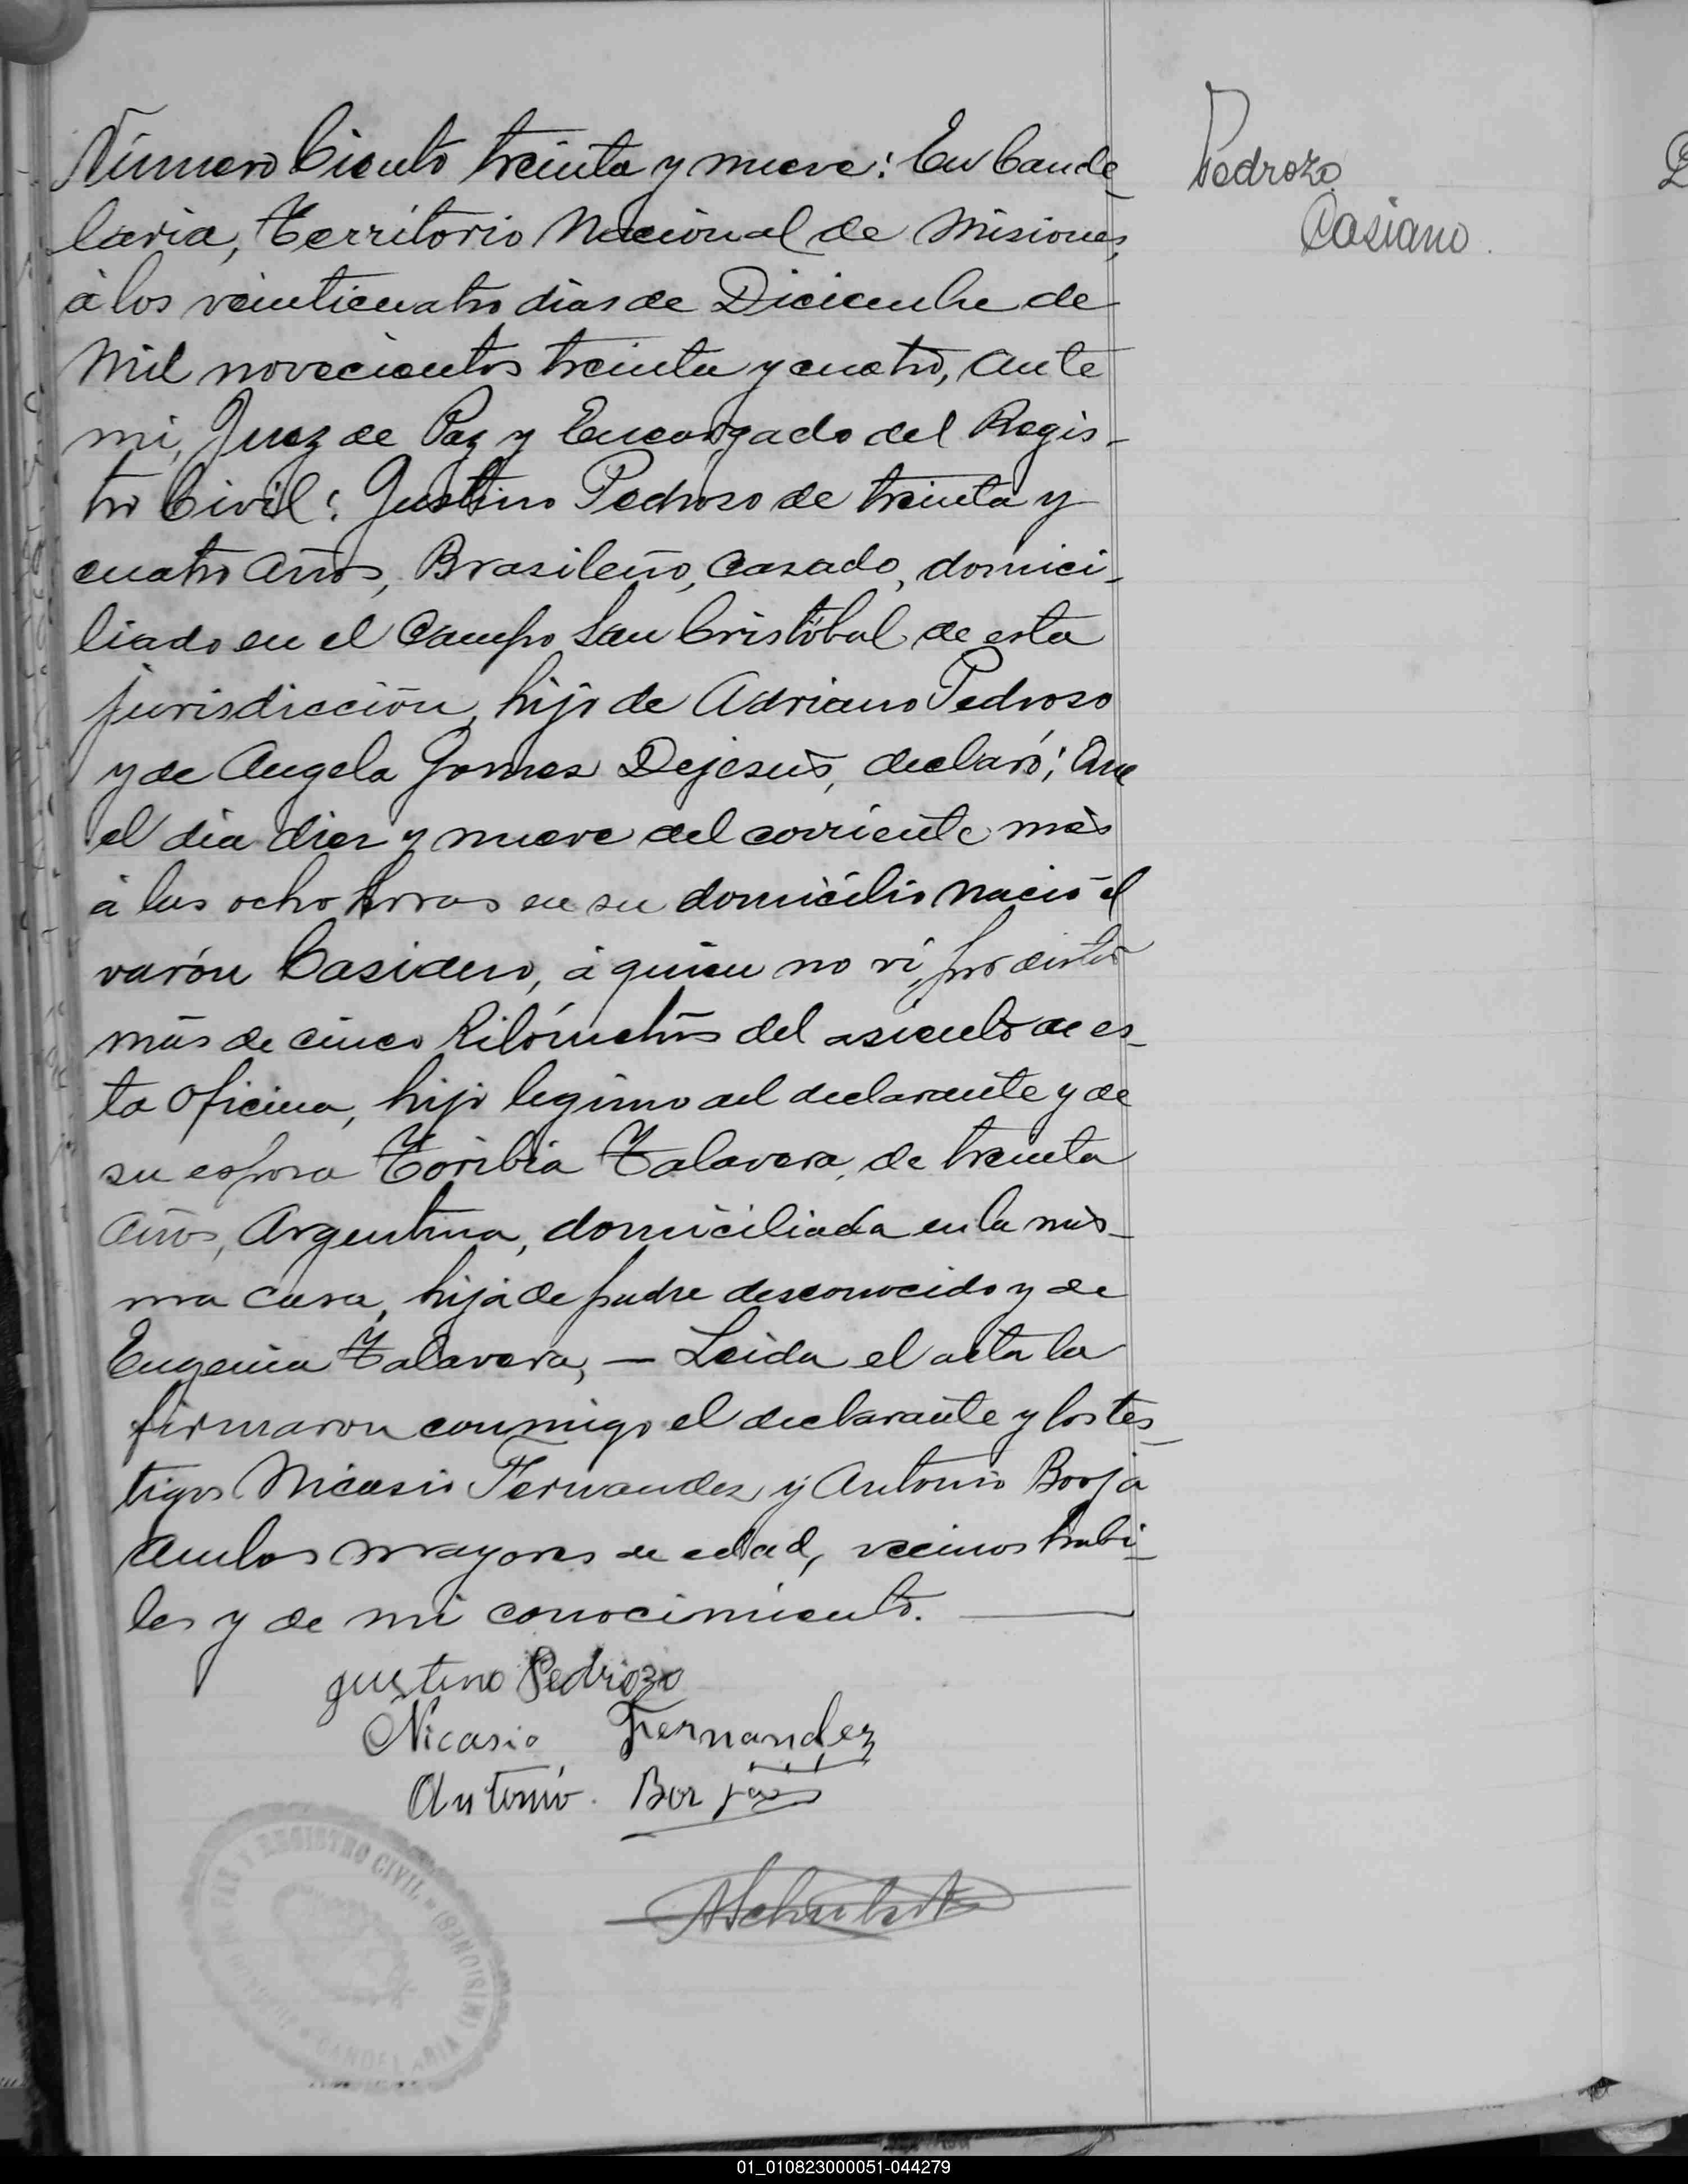 Número Ciento treinta y nueve: En Cande-
laria, Territorio Nacional de Misiones,
á los veinticuatro dias de Diciembre de
Mil novecientos treinta y cuatro, ante
mi, Juez de Paz y Encargado del Regis-
tro Civil: Justino Pedroso de treinta y
cuatro años, Brasileño, casado, domici-
liado en el Campo San Cristóbal de esta
jurisdicción, hijo de Adriano Pedroso
y de Angela Gomes Dejesús, declaró: Que
el dia diez y nueve del corriente mes
á las ocho horas en su domicilio nació el
varón Casiano, á quien no vi, por distar
más de cinco kilómetros del asiento de es-
ta Oficina, hijo legimo del declarante y de
su esposa Toribia Talavera, de treinta
años, Argentina, domiciliada en la mis-
ma casa, hija de padre desconocido y de
Eugenia Talavera, — Leida el acta la
firmaron conmigo el declarante y los tes-
tigos Nicasio Fernandez y Antonio Borja
ambos mayores de edad, vecinos habi-
les y de mi conocimiento.
Pedrozo
Casiano.
gustino Pedrozo
Nicasio Fernandez
Antonio. Borjas
PAZ Y REGISTRO CIVIL
(MISIONES)
CANDELARIA
01_010823000051-044279